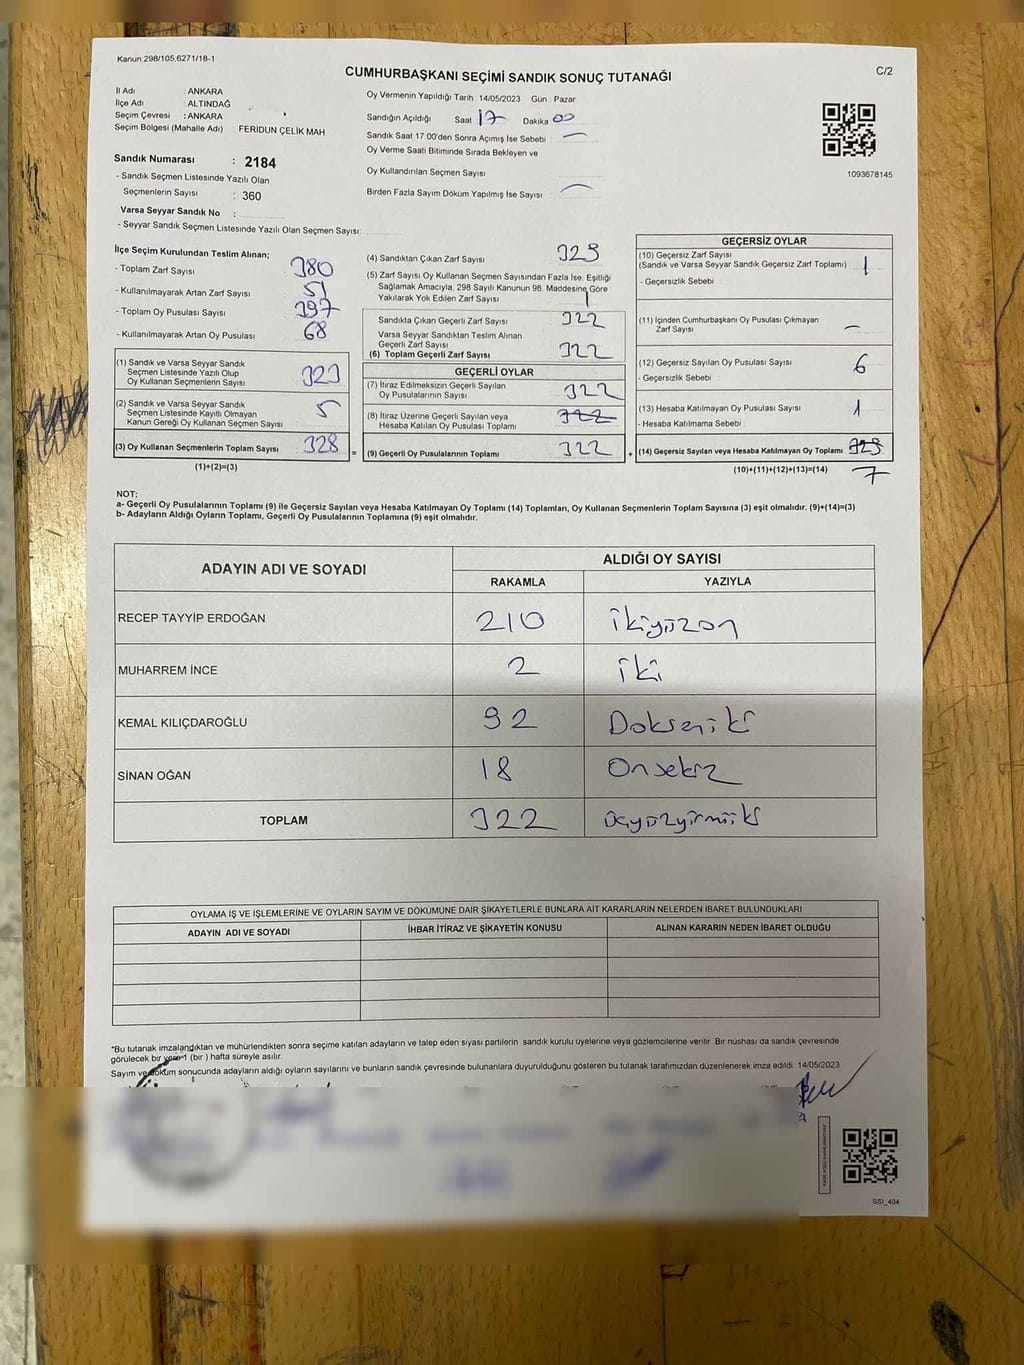 Kanun:298/105,6271/18-1
CUMHURBAŞKANI SEÇİMİ SANDIK SONUÇ TUTANAĞI
C/2
İl Adı : ANKARA
İlçe Adı : ALTINDAĞ
Seçim Çevresi : ANKARA
Seçim Bölgesi (Mahalle Adı) : FERİDUN ÇELİK MAH
Sandık Numarası : 2184
- Sandık Seçmen Listesinde Yazılı Olan
Seçmenlerin Sayısı : 360
Varsa Seyyar Sandık No :
- Seyyar Sandık Seçmen Listesinde Yazılı Olan Seçmen Sayısı:
Oy Vermenin Yapıldığı Tarih 14/05/2023 Gün Pazar
Sandığın Açıldığı Saat 17 Dakika 00
Sandık Saat 17.00'den Sonra Açımış İse Sebebi : —
Oy Verme Saati Bitiminde Sırada Bekleyen ve
Oy Kullandırılan Seçmen Sayısı
Birden Fazla Sayım Döküm Yapılmış İse Sayısı : —
1093678145
İlçe Seçim Kurulundan Teslim Alınan;
- Toplam Zarf Sayısı : 380
- Kullanılmayarak Artan Zarf Sayısı : 51
- Toplam Oy Pusulası Sayısı : 397
- Kullanılmayarak Artan Oy Pusulası : 68
(1) Sandık ve Varsa Seyyar Sandık
Seçmen Listesinde Yazılı Olup
Oy Kullanan Seçmenlerin Sayısı 323
(2) Sandık ve Varsa Seyyar Sandık
Seçmen Listesinde Kayıtlı Olmayan
Kanun Gereği Oy Kullanan Seçmen Sayısı 5
(3) Oy Kullanan Seçmenlerin Toplam Sayısı 328
(1)+(2)=(3)
(4) Sandıktan Çıkan Zarf Sayısı 323
(5) Zarf Sayısı Oy Kullanan Seçmen Sayısından Fazla İse, Eşitliği
Sağlamak Amacıyla, 298 Sayılı Kanunun 98. Maddesine Göre
Yakılarak Yok Edilen Zarf Sayısı 1
Sandıkta Çıkan Geçerli Zarf Sayısı 322
Varsa Seyyar Sandıktan Teslim Alınan
Geçerli Zarf Sayısı
(6) Toplam Geçerli Zarf Sayısı 322
GEÇERLİ OYLAR
(7) İtiraz Edilmeksizin Geçerli Sayılan
Oy Pusulalarının Sayısı 322
(8) İtiraz Üzerine Geçerli Sayılan veya
Hesaba Katılan Oy Pusulası Toplamı 322
= (9) Geçerli Oy Pusulalarının Toplamı 322
GEÇERSİZ OYLAR
(10) Geçersiz Zarf Sayısı
(Sandık ve Varsa Seyyar Sandık Geçersiz Zarf Toplamı) 1
- Geçersizlik Sebebi :
(11) İçinden Cumhurbaşkanı Oy Pusulası Çıkmayan
Zarf Sayısı —
(12) Geçersiz Sayılan Oy Pusulası Sayısı 6
- Geçersizlik Sebebi :
(13) Hesaba Katılmayan Oy Pusulası Sayısı 1
- Hesaba Katılmama Sebebi :
+ (14) Geçersiz Sayılan veya Hesaba Katılmayan Oy Toplamı 323
(10)+(11)+(12)+(13)=(14) 7
NOT:
a- Geçerli Oy Pusulalarının Toplamı (9) ile Geçersiz Sayılan veya Hesaba Katılmayan Oy Toplamı (14) Toplamları, Oy Kullanan Seçmenlerin Toplam Sayısına (3) eşit olmalıdır. (9)+(14)=(3)
b- Adayların Aldığı Oyların Toplamı, Geçerli Oy Pusulalarının Toplamına (9) eşit olmalıdır.
ADAYIN ADI VE SOYADI
ALDIĞI OY SAYISI
RAKAMLA YAZIYLA
RECEP TAYYİP ERDOĞAN 210 ikiyüzon
MUHARREM İNCE 2 iki
KEMAL KILIÇDAROĞLU 92 Doksaniki
SİNAN OĞAN 18 Onsekiz
TOPLAM 322 üçyüzyirmiiki
OYLAMA İŞ VE İŞLEMLERİNE VE OYLARIN SAYIM VE DÖKÜMÜNE DAİR ŞİKAYETLERLE BUNLARA AİT KARARLARIN NELERDEN İBARET BULUNDUKLARI
ADAYIN ADI VE SOYADI İHBAR İTİRAZ VE ŞİKAYETİN KONUSU ALINAN KARARIN NEDEN İBARET OLDUĞU
*Bu tutanak imzalandıktan ve mühürlendikten sonra seçime katılan adayların ve talep eden siyasi partilerin sandık kurulu üyelerine veya gözlemcilerine verilir. Bir nüshası da sandık çevresinde
görülecek bir yere 1 (bir ) hafta süreyle asılır.
Sayım ve döküm sonucunda adayların aldığı oyların sayılarını ve bunların sandık çevresinde bulunanlara duyurulduğunu gösteren bu tutanak tarafımızdan düzenlenerek imza edildi. 14/05/2023
SSI_404